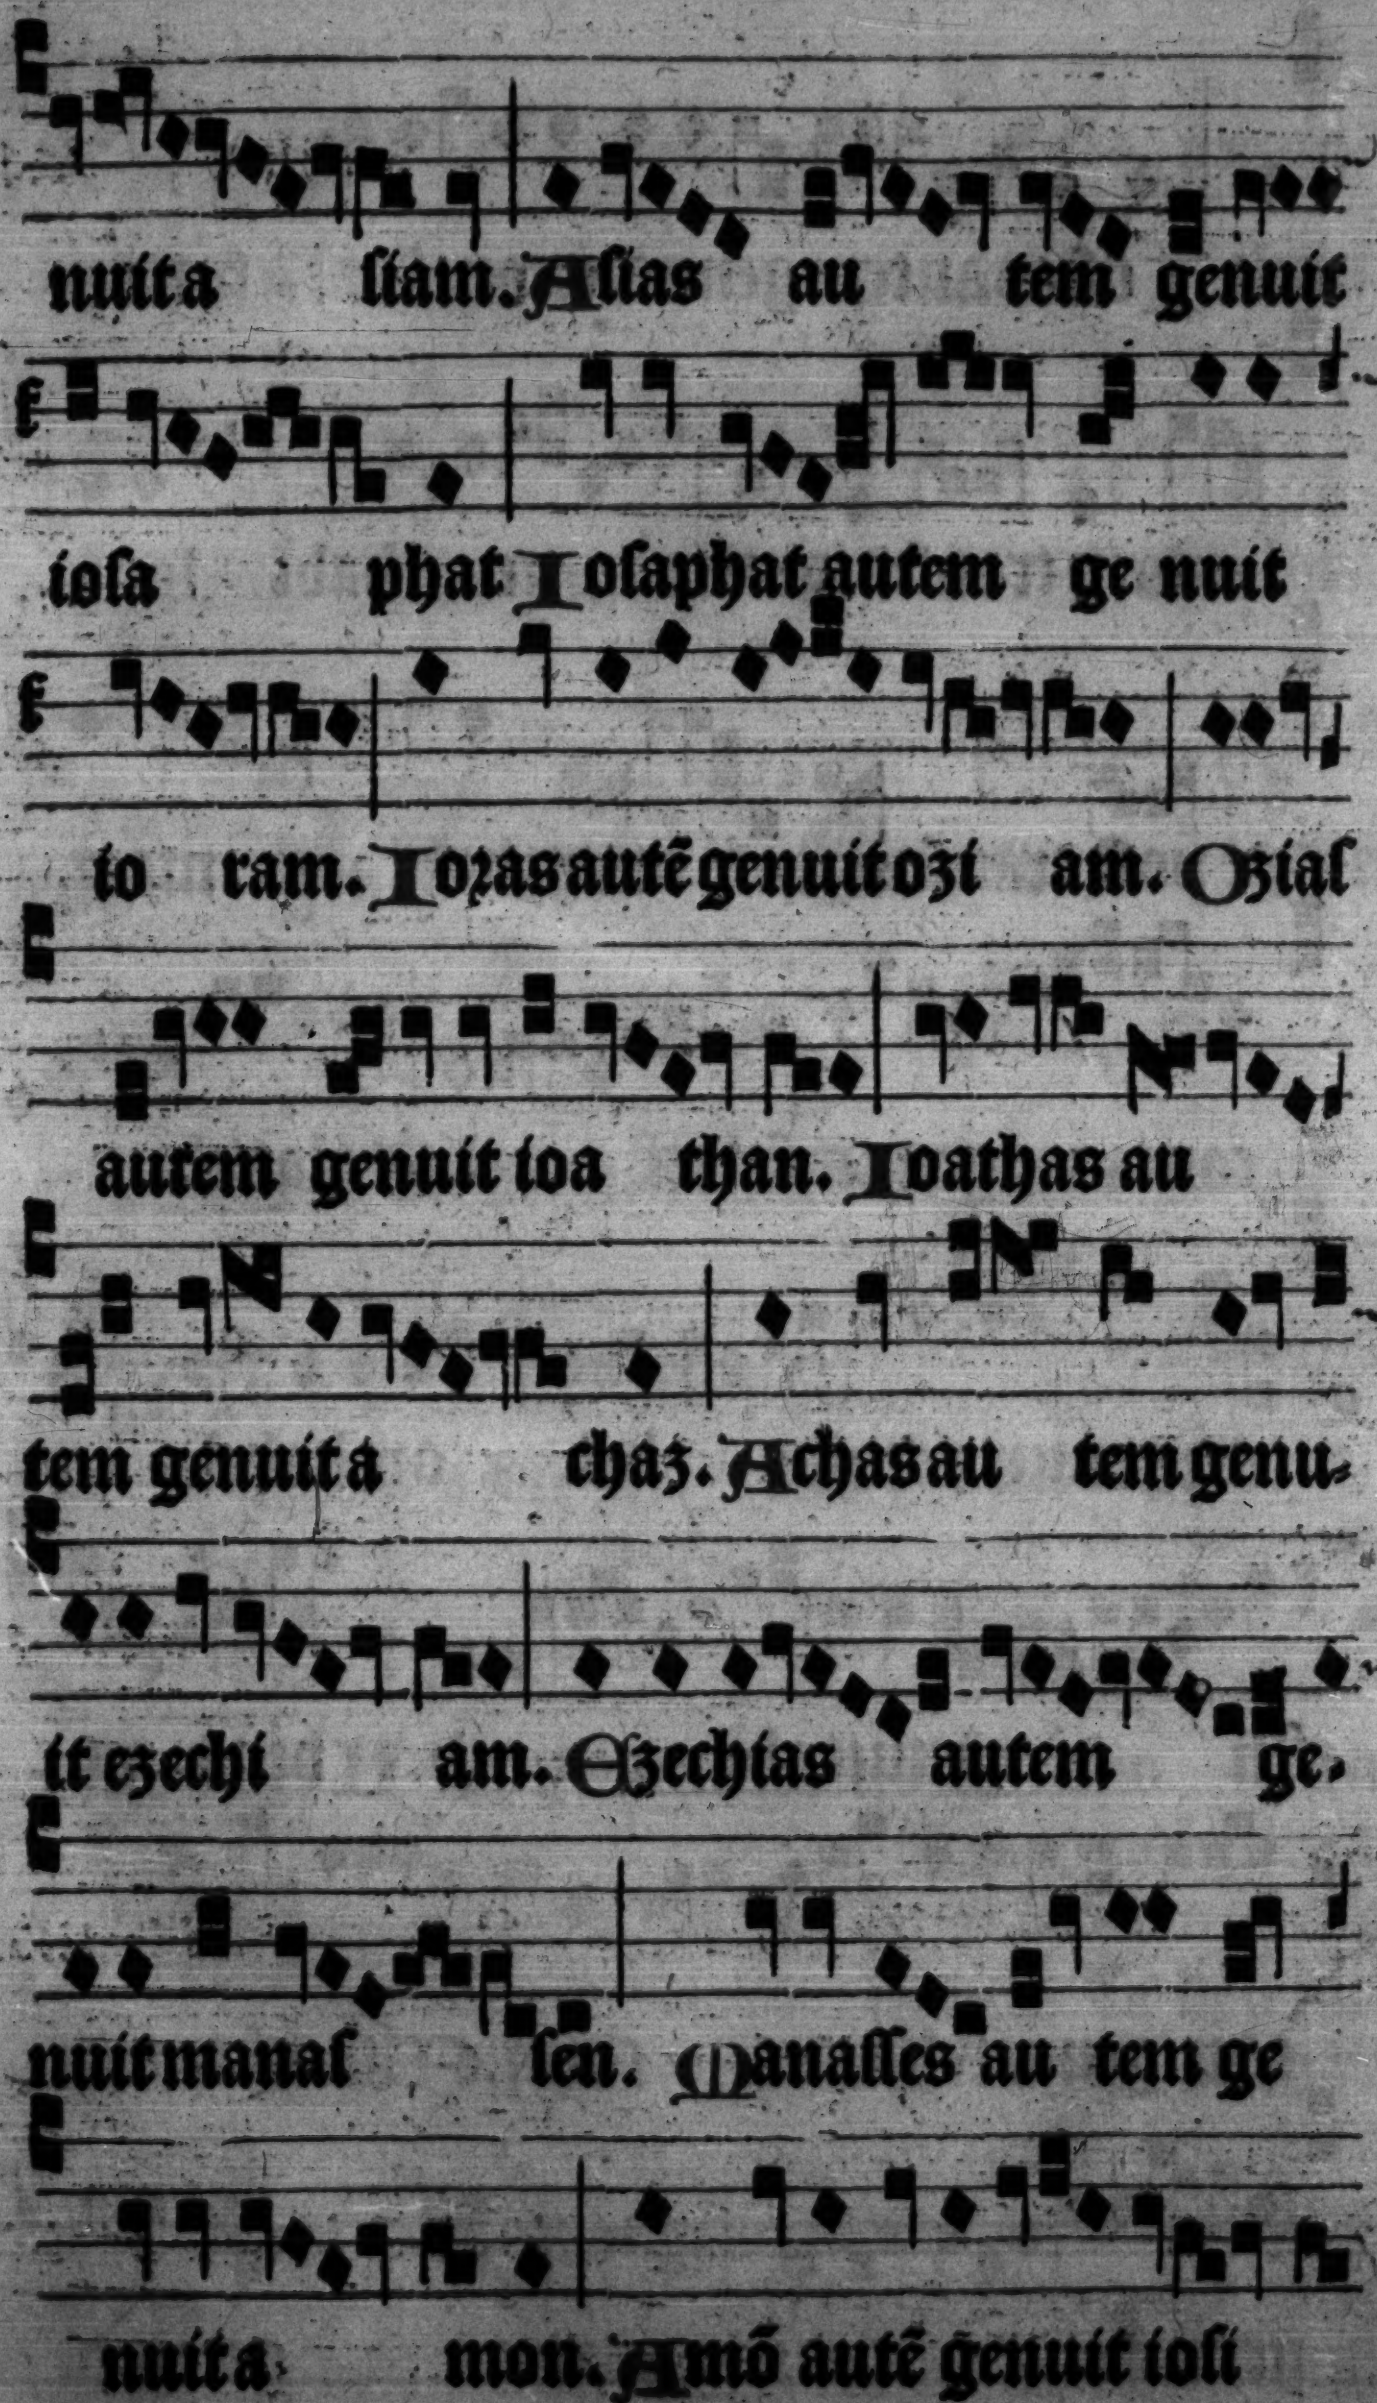 nuit a ſiam. Aſias au tem genuit
ioſa phat Ioſaphat autem ge nuit
io ram. Ioꝛas autẽ genuit ozi am. Oziaſ
autem genuit ioa than. Ioathas au
tem genuit a chaz. Achas au tem genu⸗
it ezechi am. Ezechias autem ge.
nuit manaſ ſen. Manaſſes au tem ge
nuit a mon. Amõ autẽ genuit ioſi